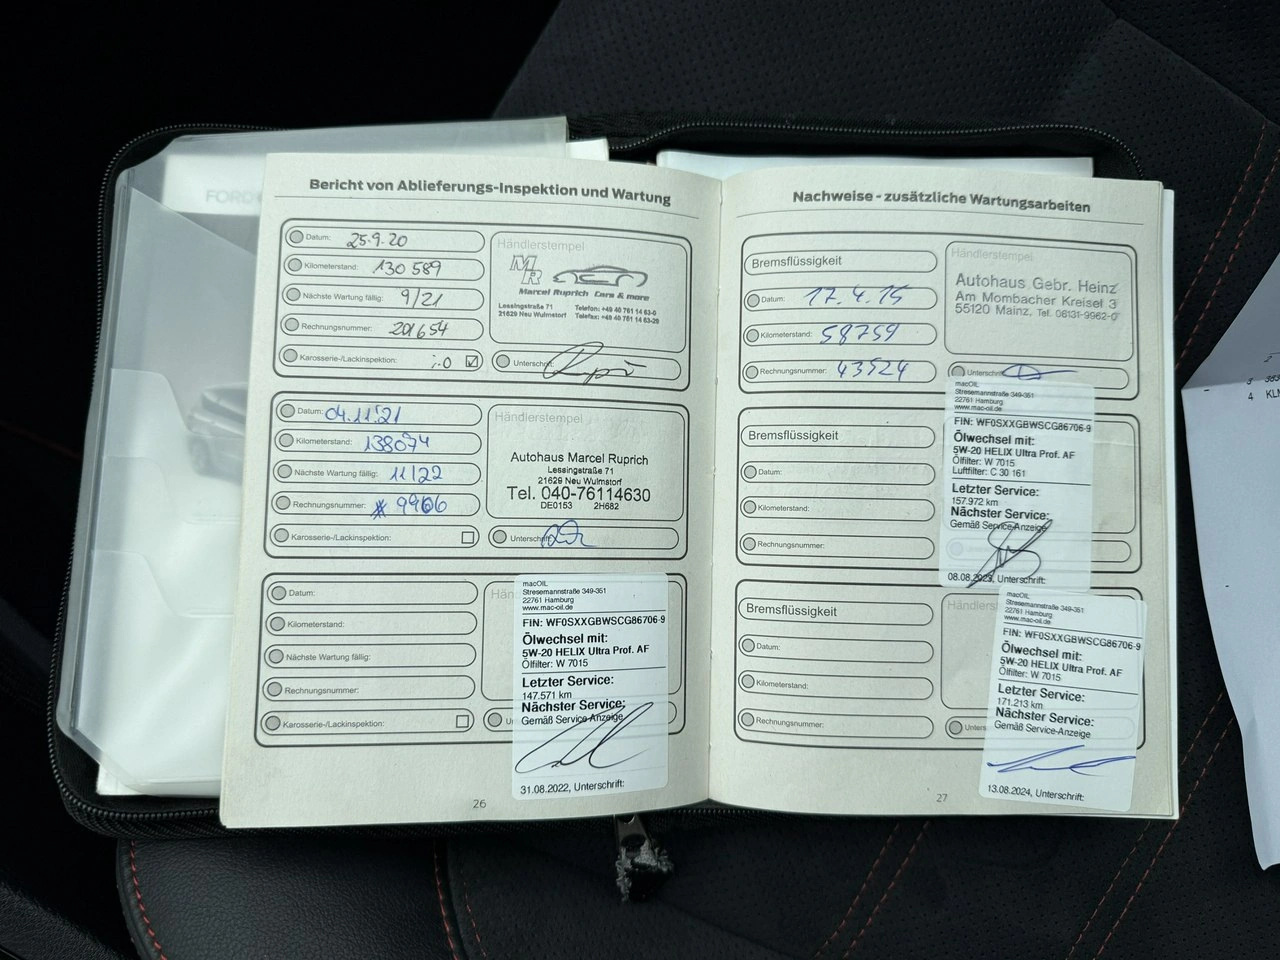 FORD
Bericht von Ablieferungs-Inspektion und Wartung
Datum: 25.9.20
Kilometerstand: 130 589
Nächste Wartung fällig: 9/21
Rechnungsnummer: 201654
Karosserie-/Lackinspektion: i.O
Händlerstempel
MR
Marcel Ruprich Cars & more
Lessingstraße 71 Telefon: +49 40 761 14 63-0
21629 Neu Wulmstorf Telefax: +49 40 761 14 63-28
Unterschrift:
Datum: 04.11.21
Kilometerstand: 138074
Nächste Wartung fällig: 11/22
Rechnungsnummer: # 9966
Karosserie-/Lackinspektion:
Händlerstempel
Autohaus Marcel Ruprich
Lessingstraße 71
21629 Neu Wulmstorf
Tel. 040-76114630
DE0153 2H682
Unterschrift:
Datum:
Kilometerstand:
Nächste Wartung fällig:
Rechnungsnummer:
Karosserie-/Lackinspektion:
Hän
Un
macOIL
Stresemannstraße 349-351
22761 Hamburg
www.mac-oil.de
FIN: WF0SXXGBWSCG86706-9
Ölwechsel mit:
5W-20 HELIX Ultra Prof. AF
Ölfilter: W 7015
Letzter Service:
147.571 km
Nächster Service:
Gemäß Service-Anzeige
31.08.2022, Unterschrift:
26
Nachweise - zusätzliche Wartungsarbeiten
Bremsflüssigkeit
Datum: 17.4.15
Kilometerstand: 58759
Rechnungsnummer: 43524
Händlerstempel
Autohaus Gebr. Heinz
Am Mombacher Kreisel 3
55120 Mainz, Tel. 06131-9962-0
Unterschrift:
Bremsflüssigkeit
Datum:
Kilometerstand:
Rechnungsnummer:
macOIL
Stresemannstraße 349-351
22761 Hamburg
www.mac-oil.de
FIN: WF0SXXGBWSCG86706-9
Ölwechsel mit:
5W-20 HELIX Ultra Prof. AF
Ölfilter: W 7015
Luftfilter: C 30 161
Letzter Service:
157.972 km
Nächster Service:
Gemäß Service-Anzeige
08.08.2023, Unterschrift:
Bremsflüssigkeit
Datum:
Kilometerstand:
Rechnungsnummer:
Händlers
Unters
macOIL
Stresemannstraße 349-351
22761 Hamburg
www.mac-oil.de
FIN: WF0SXXGBWSCG86706-9
Ölwechsel mit:
5W-20 HELIX Ultra Prof. AF
Ölfilter: W 7015
Letzter Service:
171.213 km
Nächster Service:
Gemäß Service-Anzeige
13.08.2024, Unterschrift:
27
2
3 383
4 KLM